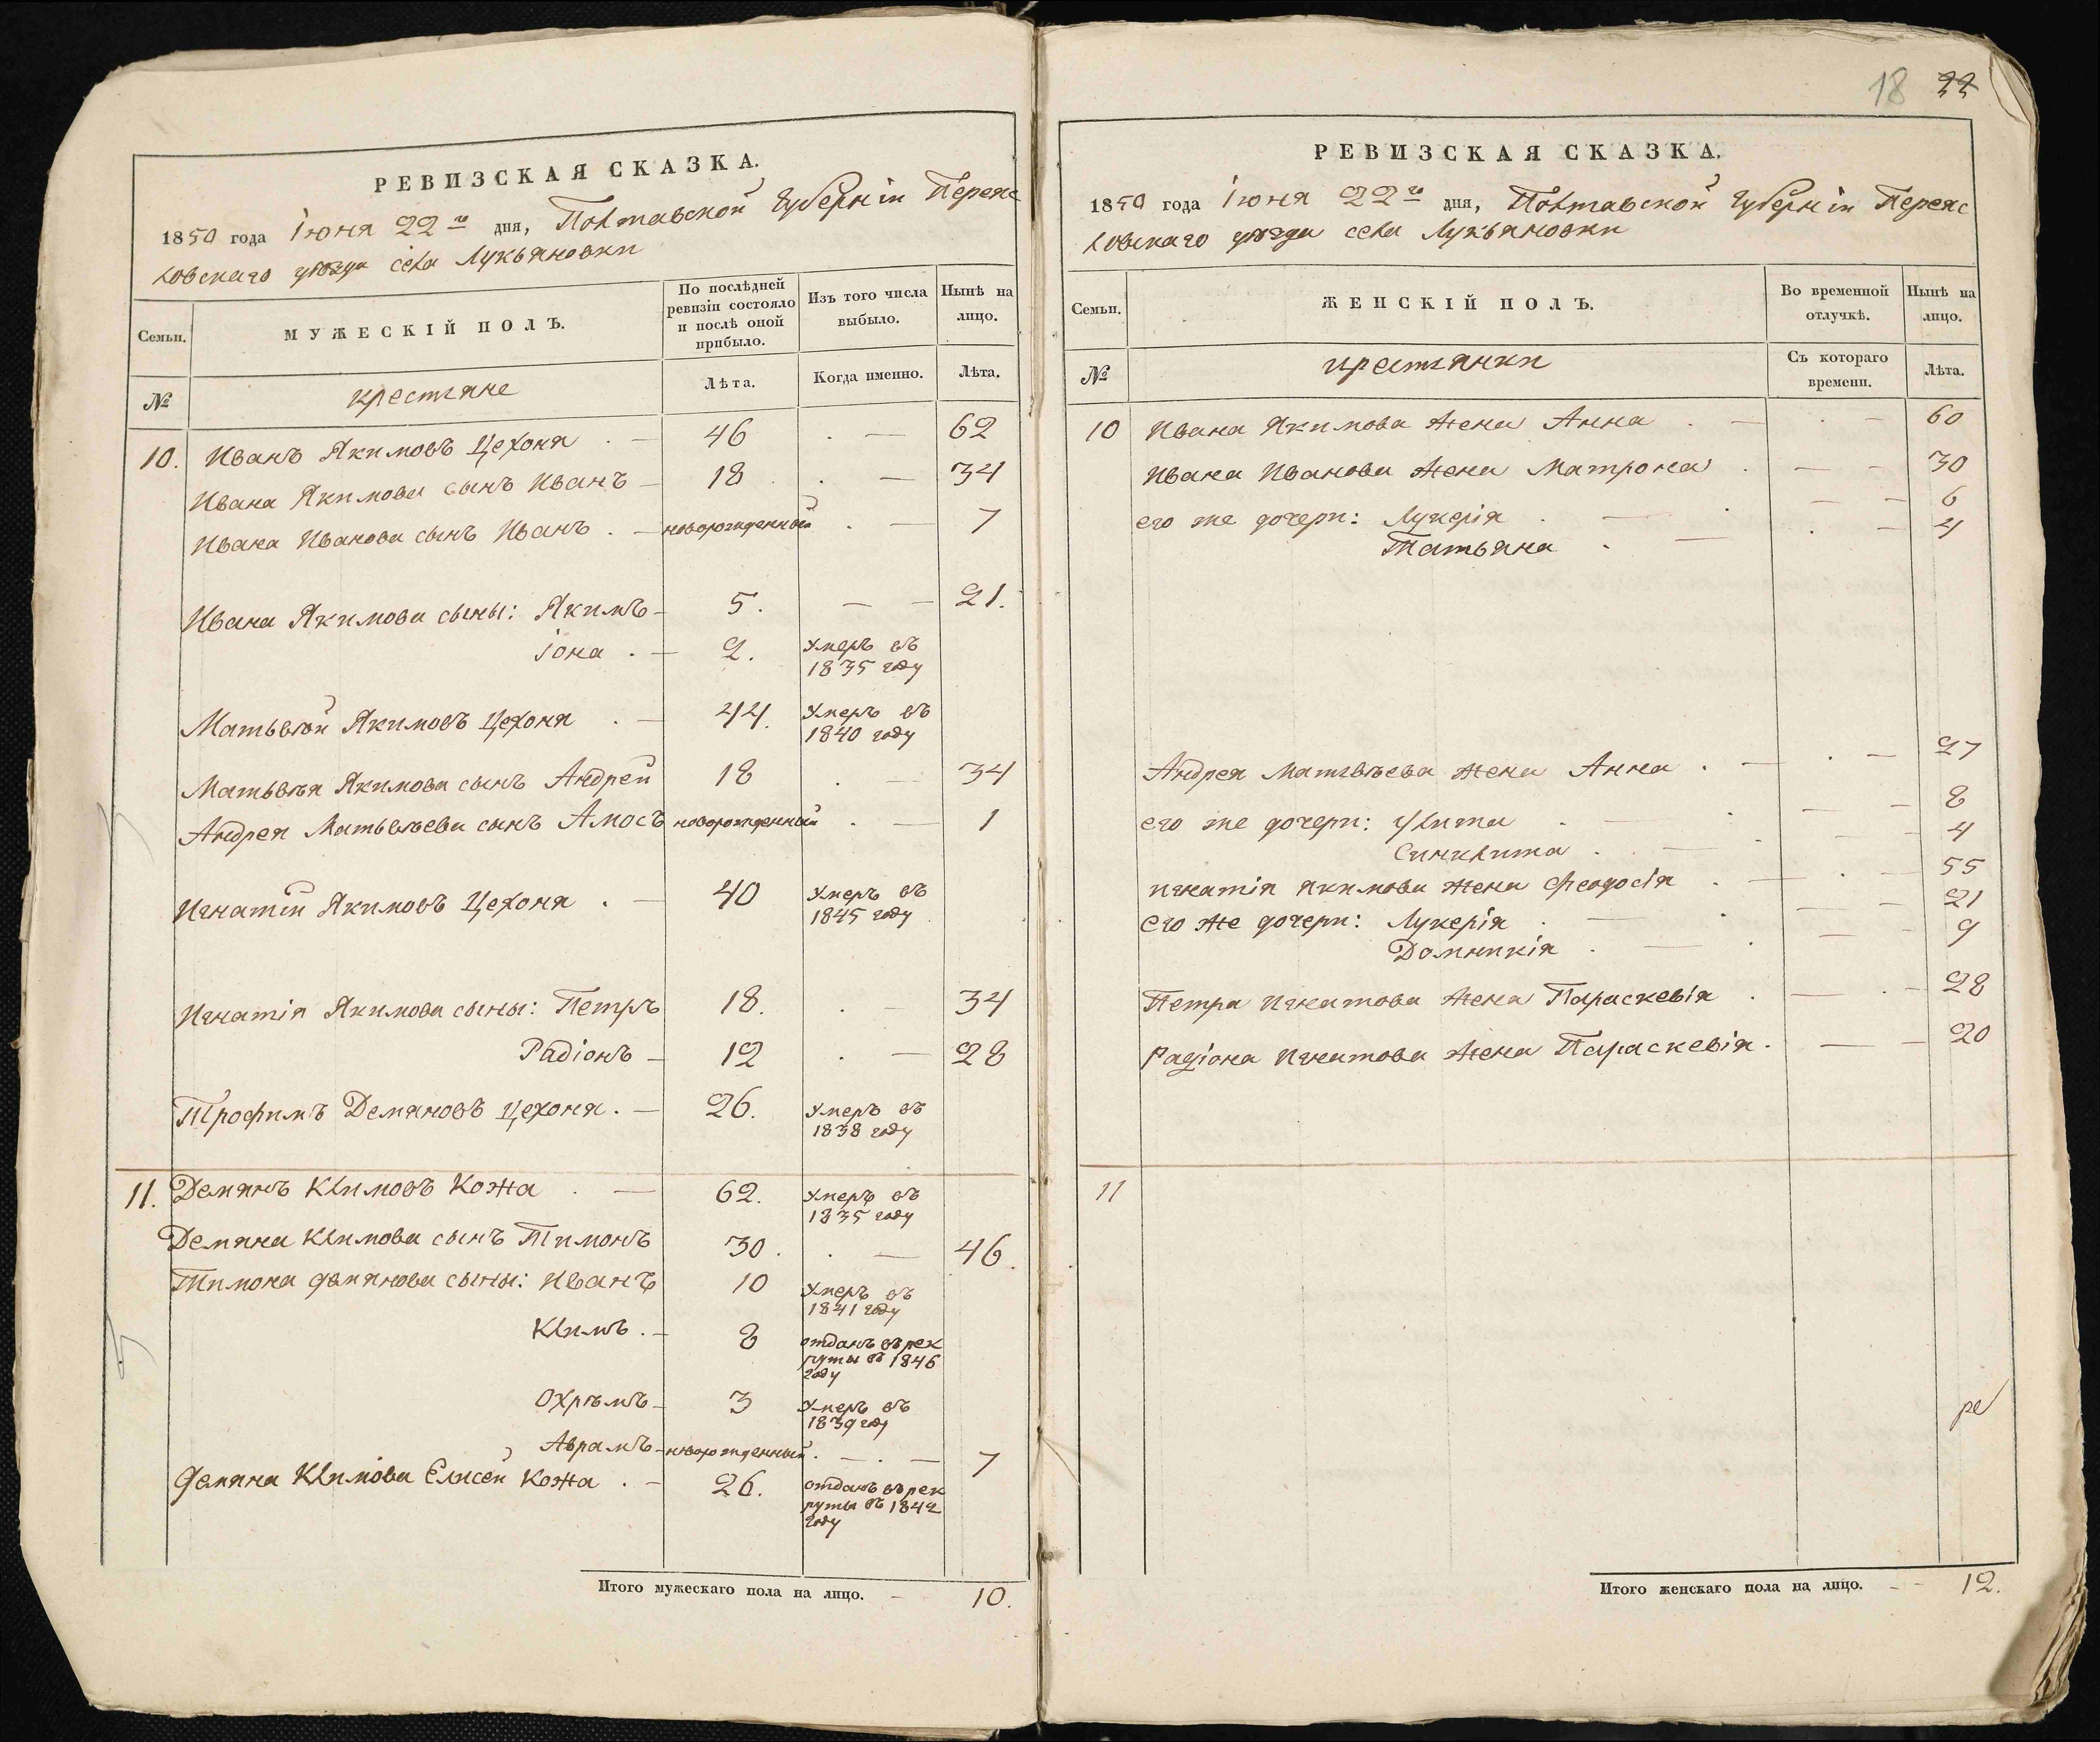 РЕВИЗСКАЯ СКАЗКА.
1850 года Іюня 22го дня, Полтавской Губерніи Переяс
ловскаго уѣзда села Лукьяновки
Семьи.
МУЖЕСКІЙ ПОЛЪ.
По послѣдней
ревизіи состояло
и послѣ оной
прибыло.
Изъ того числа
выбыло.
Нынѣ на
лицо.
№
крестяне
Лѣта.
Когда именно.
Лѣта.
10. Иванъ Якимовъ Цехоня . — 46 . — 62
Ивана Якимова сынъ Иванъ — 18 . — 34
Ивана Иванова сынъ Иванъ . — новорожденный . — 7
Ивана Якимова сыны: Якимъ — 5. — — 21.
Іона . — 2. умеръ въ
1835 году
Матьвѣй Якимовъ Цехоня . — 44. умеръ въ
1840 году
Матьвѣя Якимова сынъ Андрей 18 . — 34
Андрея Матьвѣева сынъ Амосъ новорожденный . — 1
Игнатій Якимовъ Цехоня . — 40 умеръ въ
1845 году
Игнатія Якимова сыны: Петръ 18. . — 34
Радіонъ — 12 . — 28
Трофимъ Демяновъ Цехоня . — 26. умеръ въ
1838 году
11. Демянъ Климовъ Кожа . — 62. умеръ въ
1835 году
Демяна Климова сынъ Тимонъ 30. . — 46.
Тимона демянова сыны: Иванъ 10 умеръ въ
1841 году
Климъ . — 8 отданъ въ рек
руты въ 1846
году
Охрѣмъ — 3 умеръ въ
1839 году
Аврамъ — новорожденный . — . — 7
Демяна Климова Елисей Кожа . — 26. отданъ въ рек
руты въ 1842
году
Итого мужескаго пола на лицо. — 10.
18 22
РЕВИЗСКАЯ СКАЗКА.
1850 года Іюня 22го дня, Полтавской Губерніи Переяс
ловскаго уѣзда села Лукьяновки
Семьи.
ЖЕНСКІЙ ПОЛЪ.
Во временной
отлучкѣ.
Нынѣ на
лицо.
№
крестянки
Съ котораго
времени.
Лѣта.
10 Ивана Якимова жена Анна . — . — 60
Ивана Иванова жена Матрона . — — 30
его же дочери: Лукерія . — . — — 6
Татьяна . — . — 4
Андрея Матвѣева жена Анна . — . — 27
его же дочери: Улита . — . — — 8
Синклита . — . — — 4
Игнатія Якимова жена Феодосія . — . — 55
его же дочери: Лукерія . — . — — 21
Домникія . — . — — 9
Петра Игнатова жена Параскевія . — . — 28
Радіона Игнатова жена Параскевія . — — 20
11
Итого женскаго пола на лицо. — — 12.